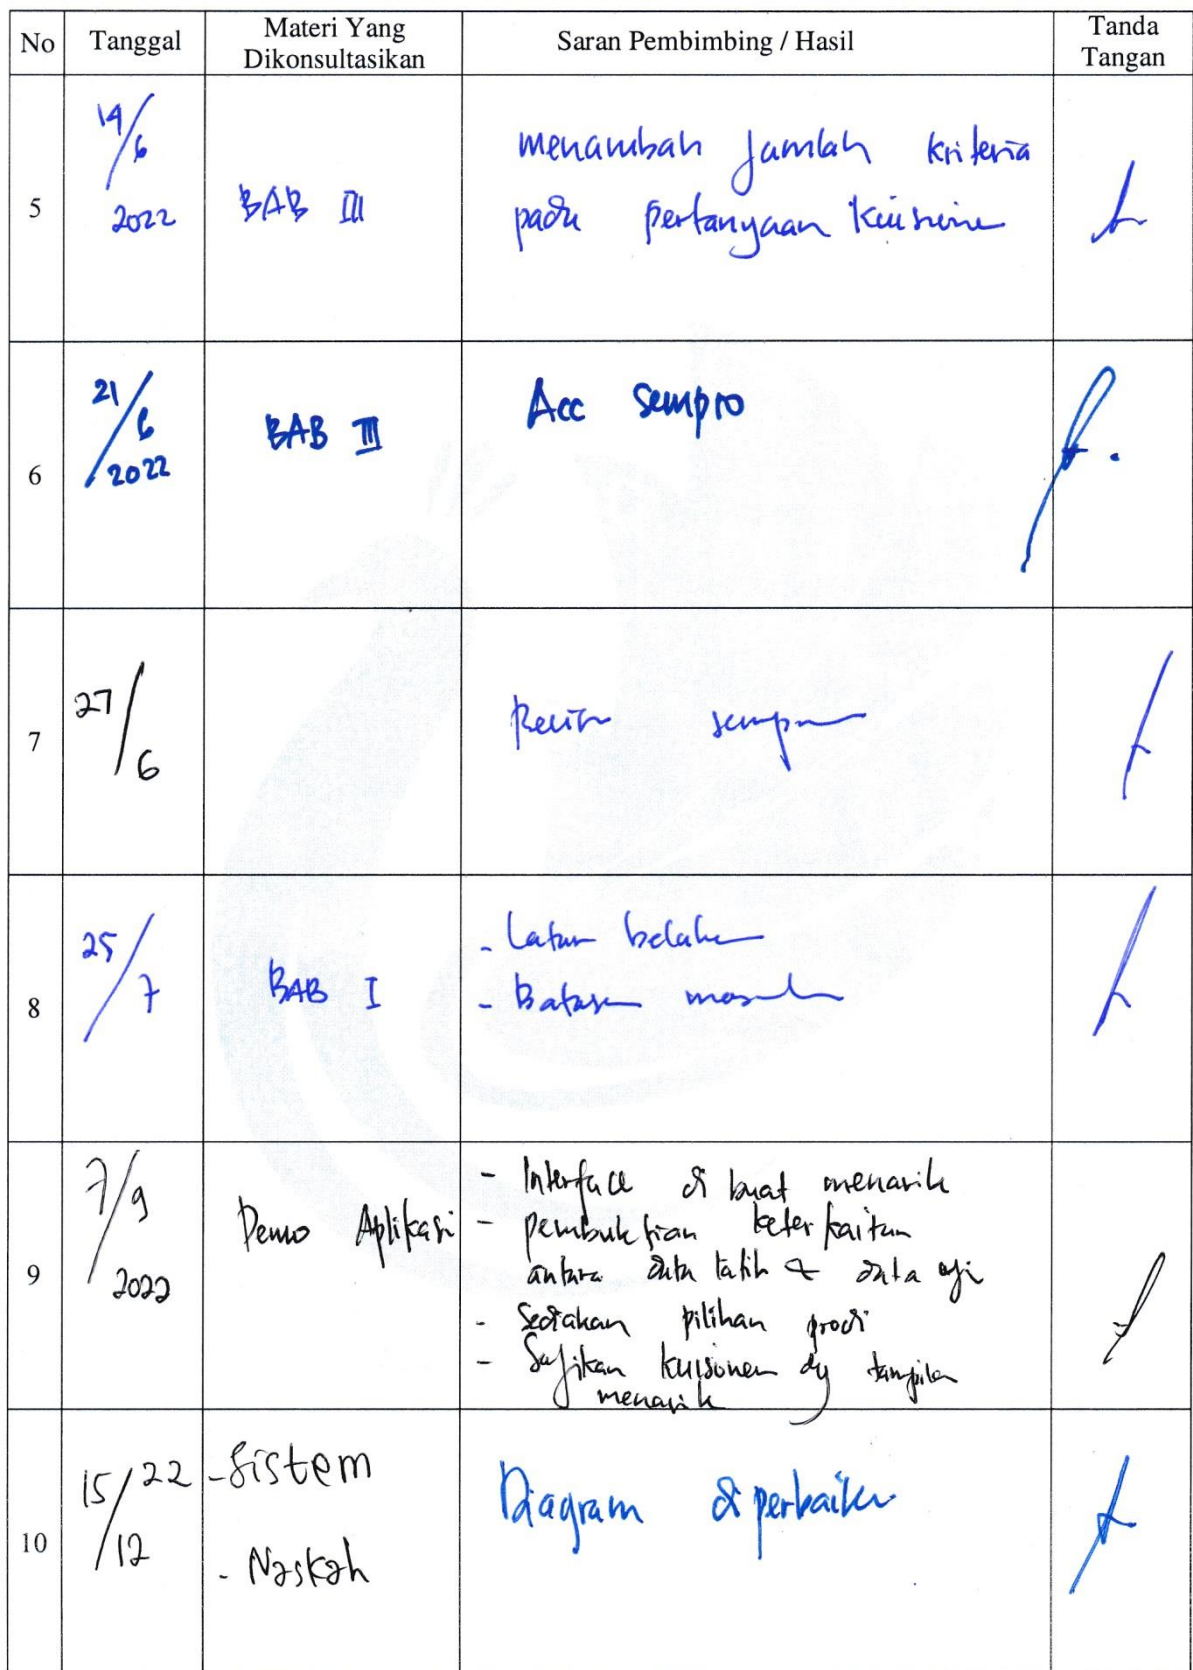 No Tanggal Materi Yang Dikonsultasikan Saran Pembimbing / Hasil Tanda Tangan
5
14/6
2022
BAB III
menambah jumlah kriteria
pada pertanyaan
6
21/6
2022
BAB III
Acc sempro
7
27/6
sempro
8
25/7
BAB I
- Latar belakang
- Batasan masalah
9
7/9
2022
Demo Aplikasi
- Interface di buat menarik
- pembuktian keterkaitan
antara data latih & data uji
- Sediakan pilihan prodi
- Sajikan kuisioner dg tampilan
menarik
10
15/12 22
- Sistem
- Naskah
Diagram diperbaiki